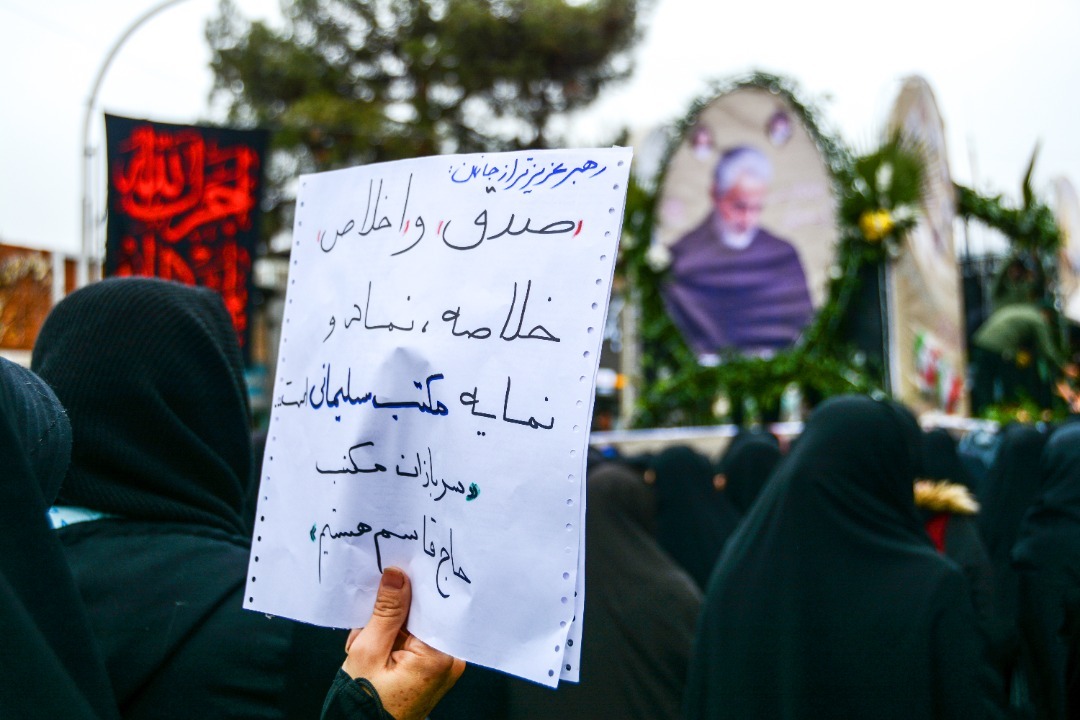 رهبر عزیزتر از جانمان:
"صدق" و "اخلاص"
خلاصه، نماد و
نمایه مکتب سلیمانی است..
«سربازان مکتب
حاج قاسم هستیم»